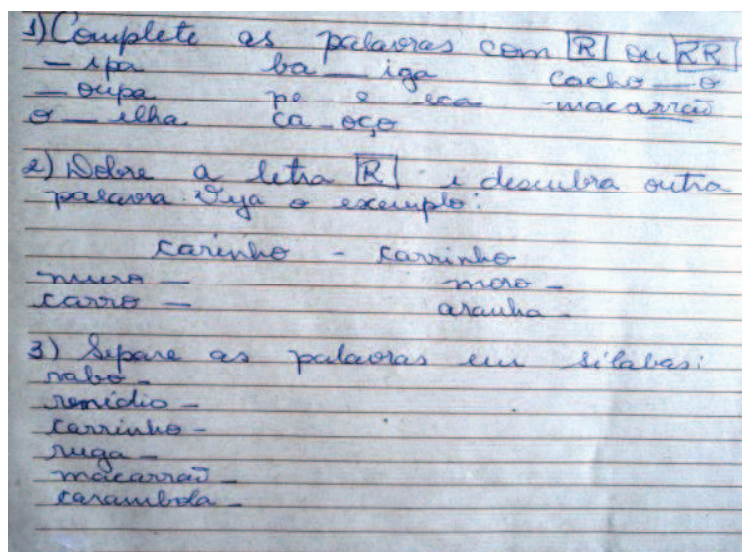 1) Complete as palavras com R ou RR
_ipa ba_iga cacho_o
_oupa pe e eca macarrão
o_elha ca_oço
2) Dobre a letra R e descubra outra
palavra. Veja o exemplo:
carinho - carrinho
muro - moro -
carro - aranha -
3) Separe as palavras em sílabas:
rabo -
remídio -
carrinho -
ruga -
macarrão -
carambola -